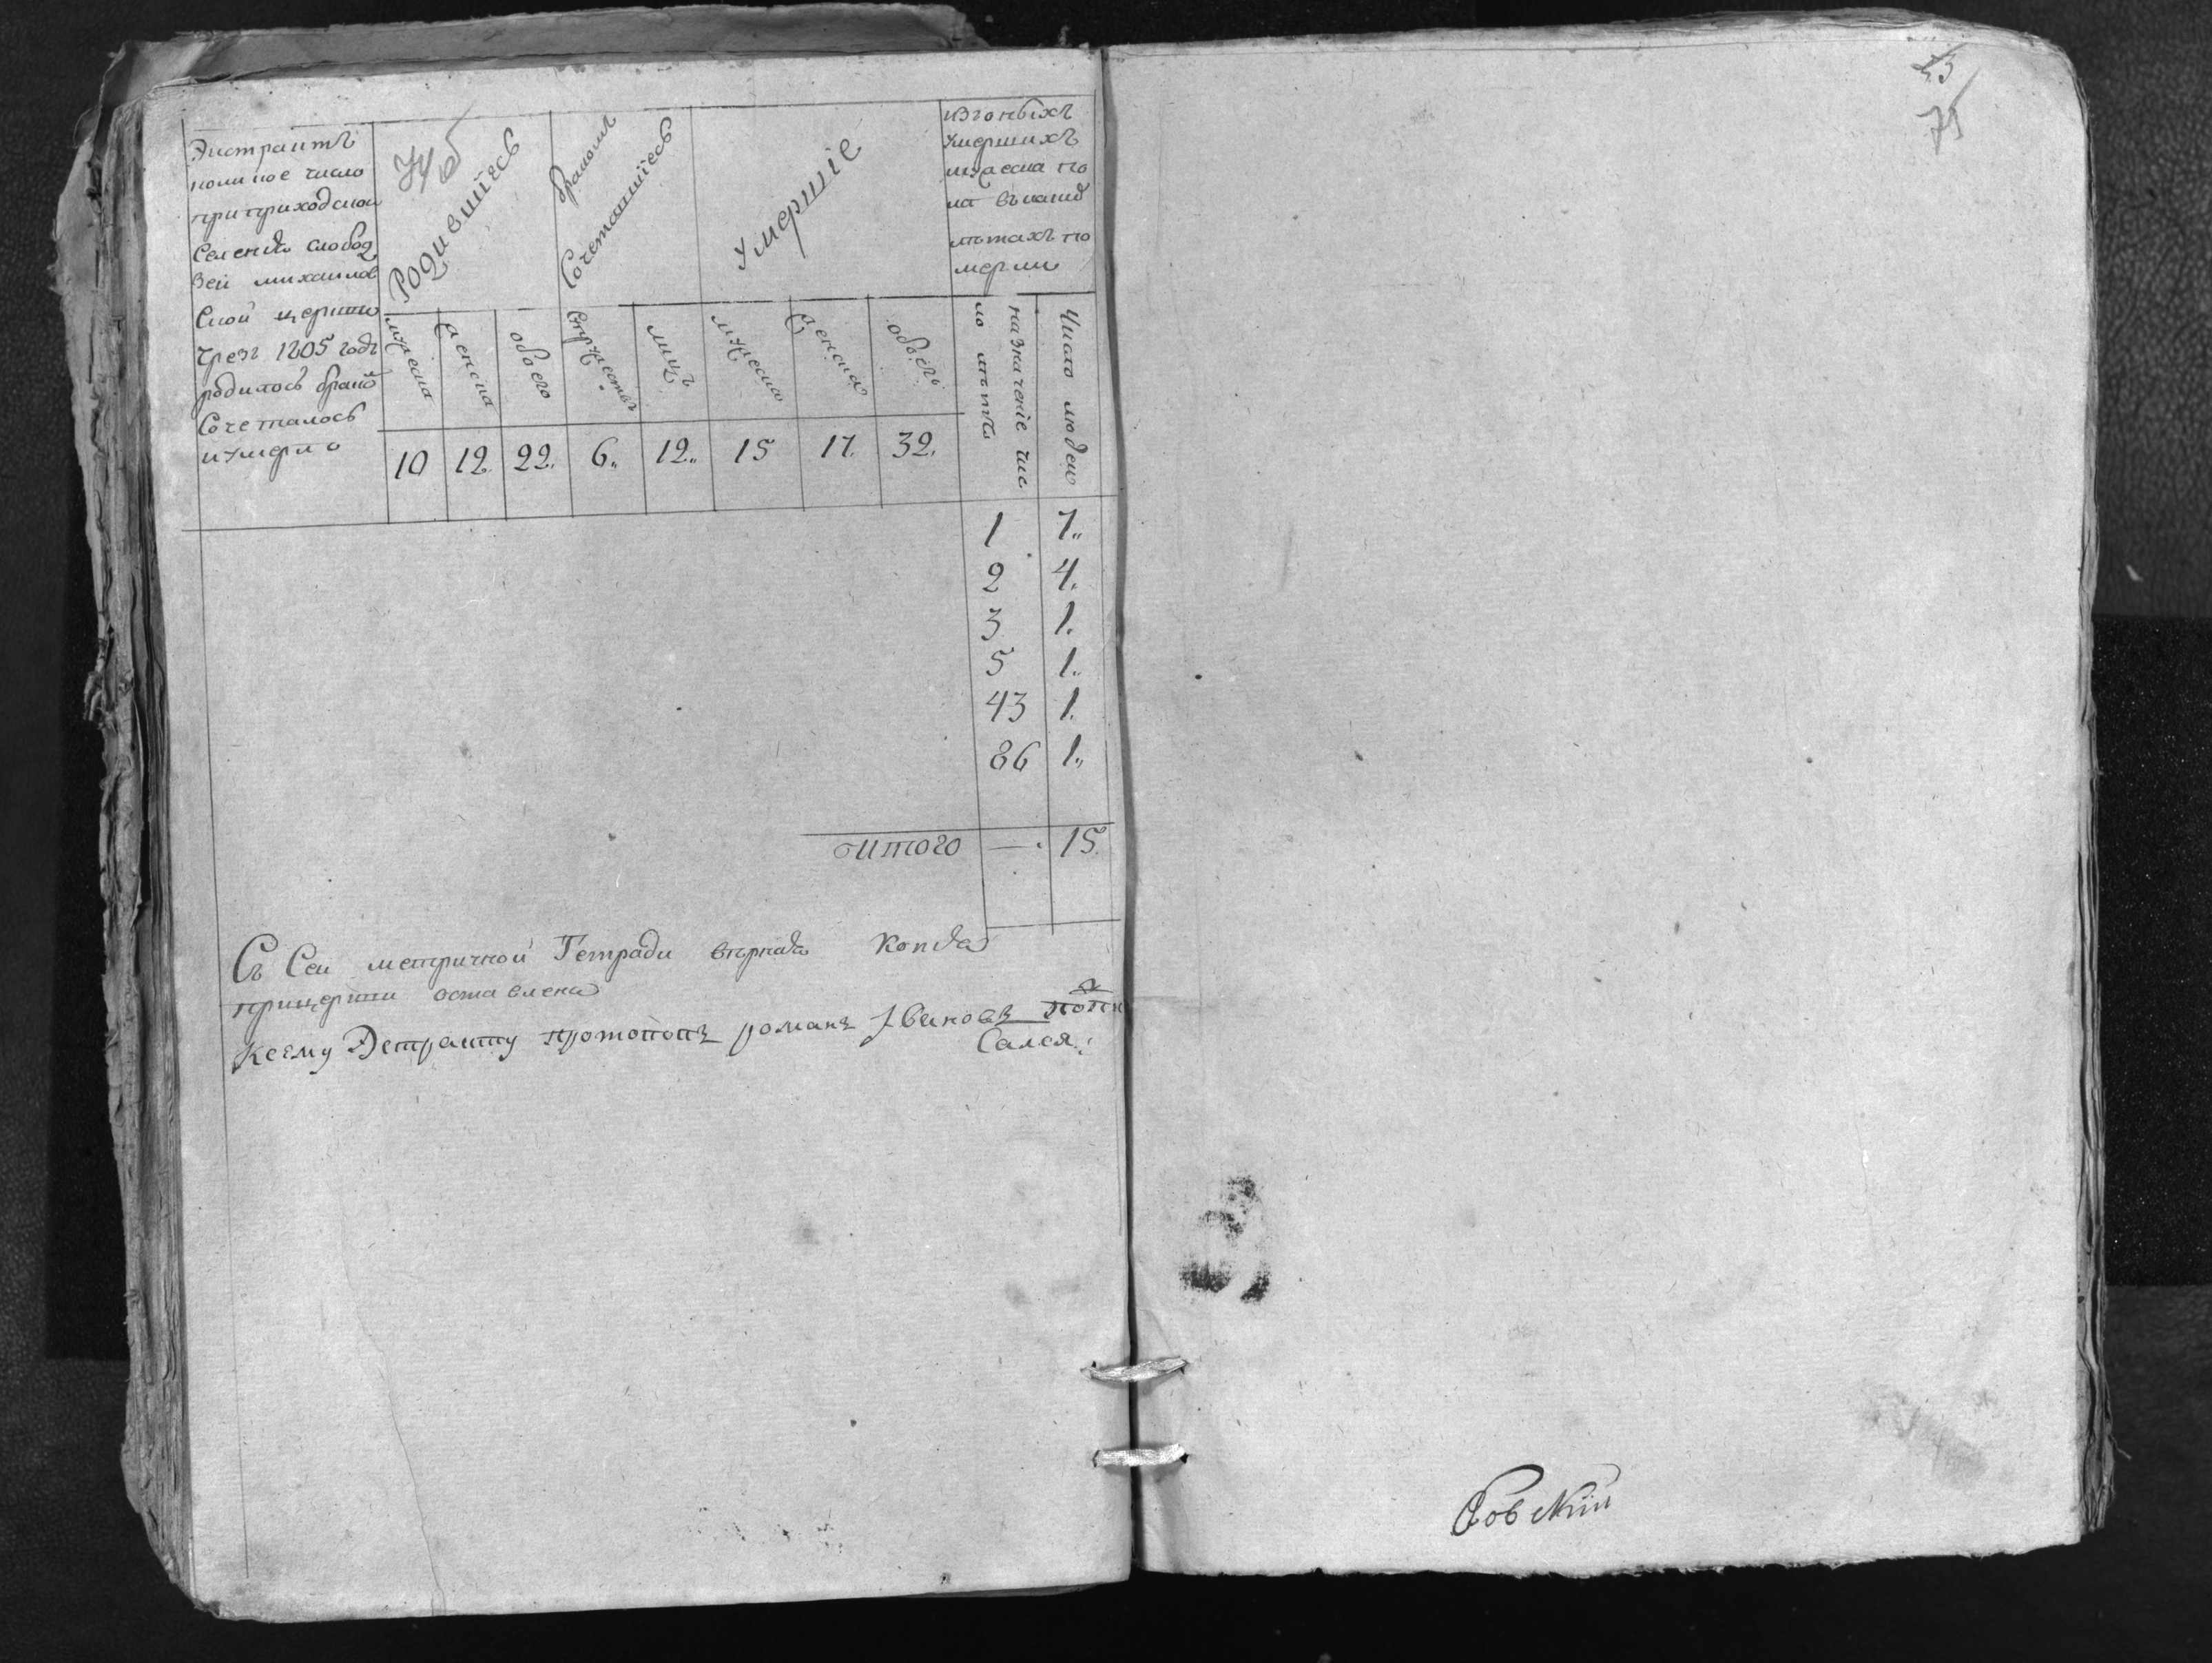 Экстрактъ
коликое число
при приходской
селенія слобод
зеи михаилов
ской церкви
чрезъ 1805 годъ
родилось бракѡ
сочеталось
и умерло
74 об
Родившіесь
бракомъ
Сочетавшіесь
Умершіе
изъ оныхъ
умершихъ
мужеска по
ла въ какиѯ
лѣтахъ по
мерли
мужеска
женска
обоего
супружествъ
лицъ
мужеска
женска
обоего
назначеніе чис
ло лѣтъ
Число людей
10 12. 22. 6. 12. 15 17. 32.
1 7.
2 4.
3 1.
5 1.
43 1.
86 1.
Итого — 15.
Съ Сеи метричной Тетради вѣрная Копія
при церкви оставлена
К сему Экстракту протопопъ романъ Ивановъ подпи
сался
75
Совскій